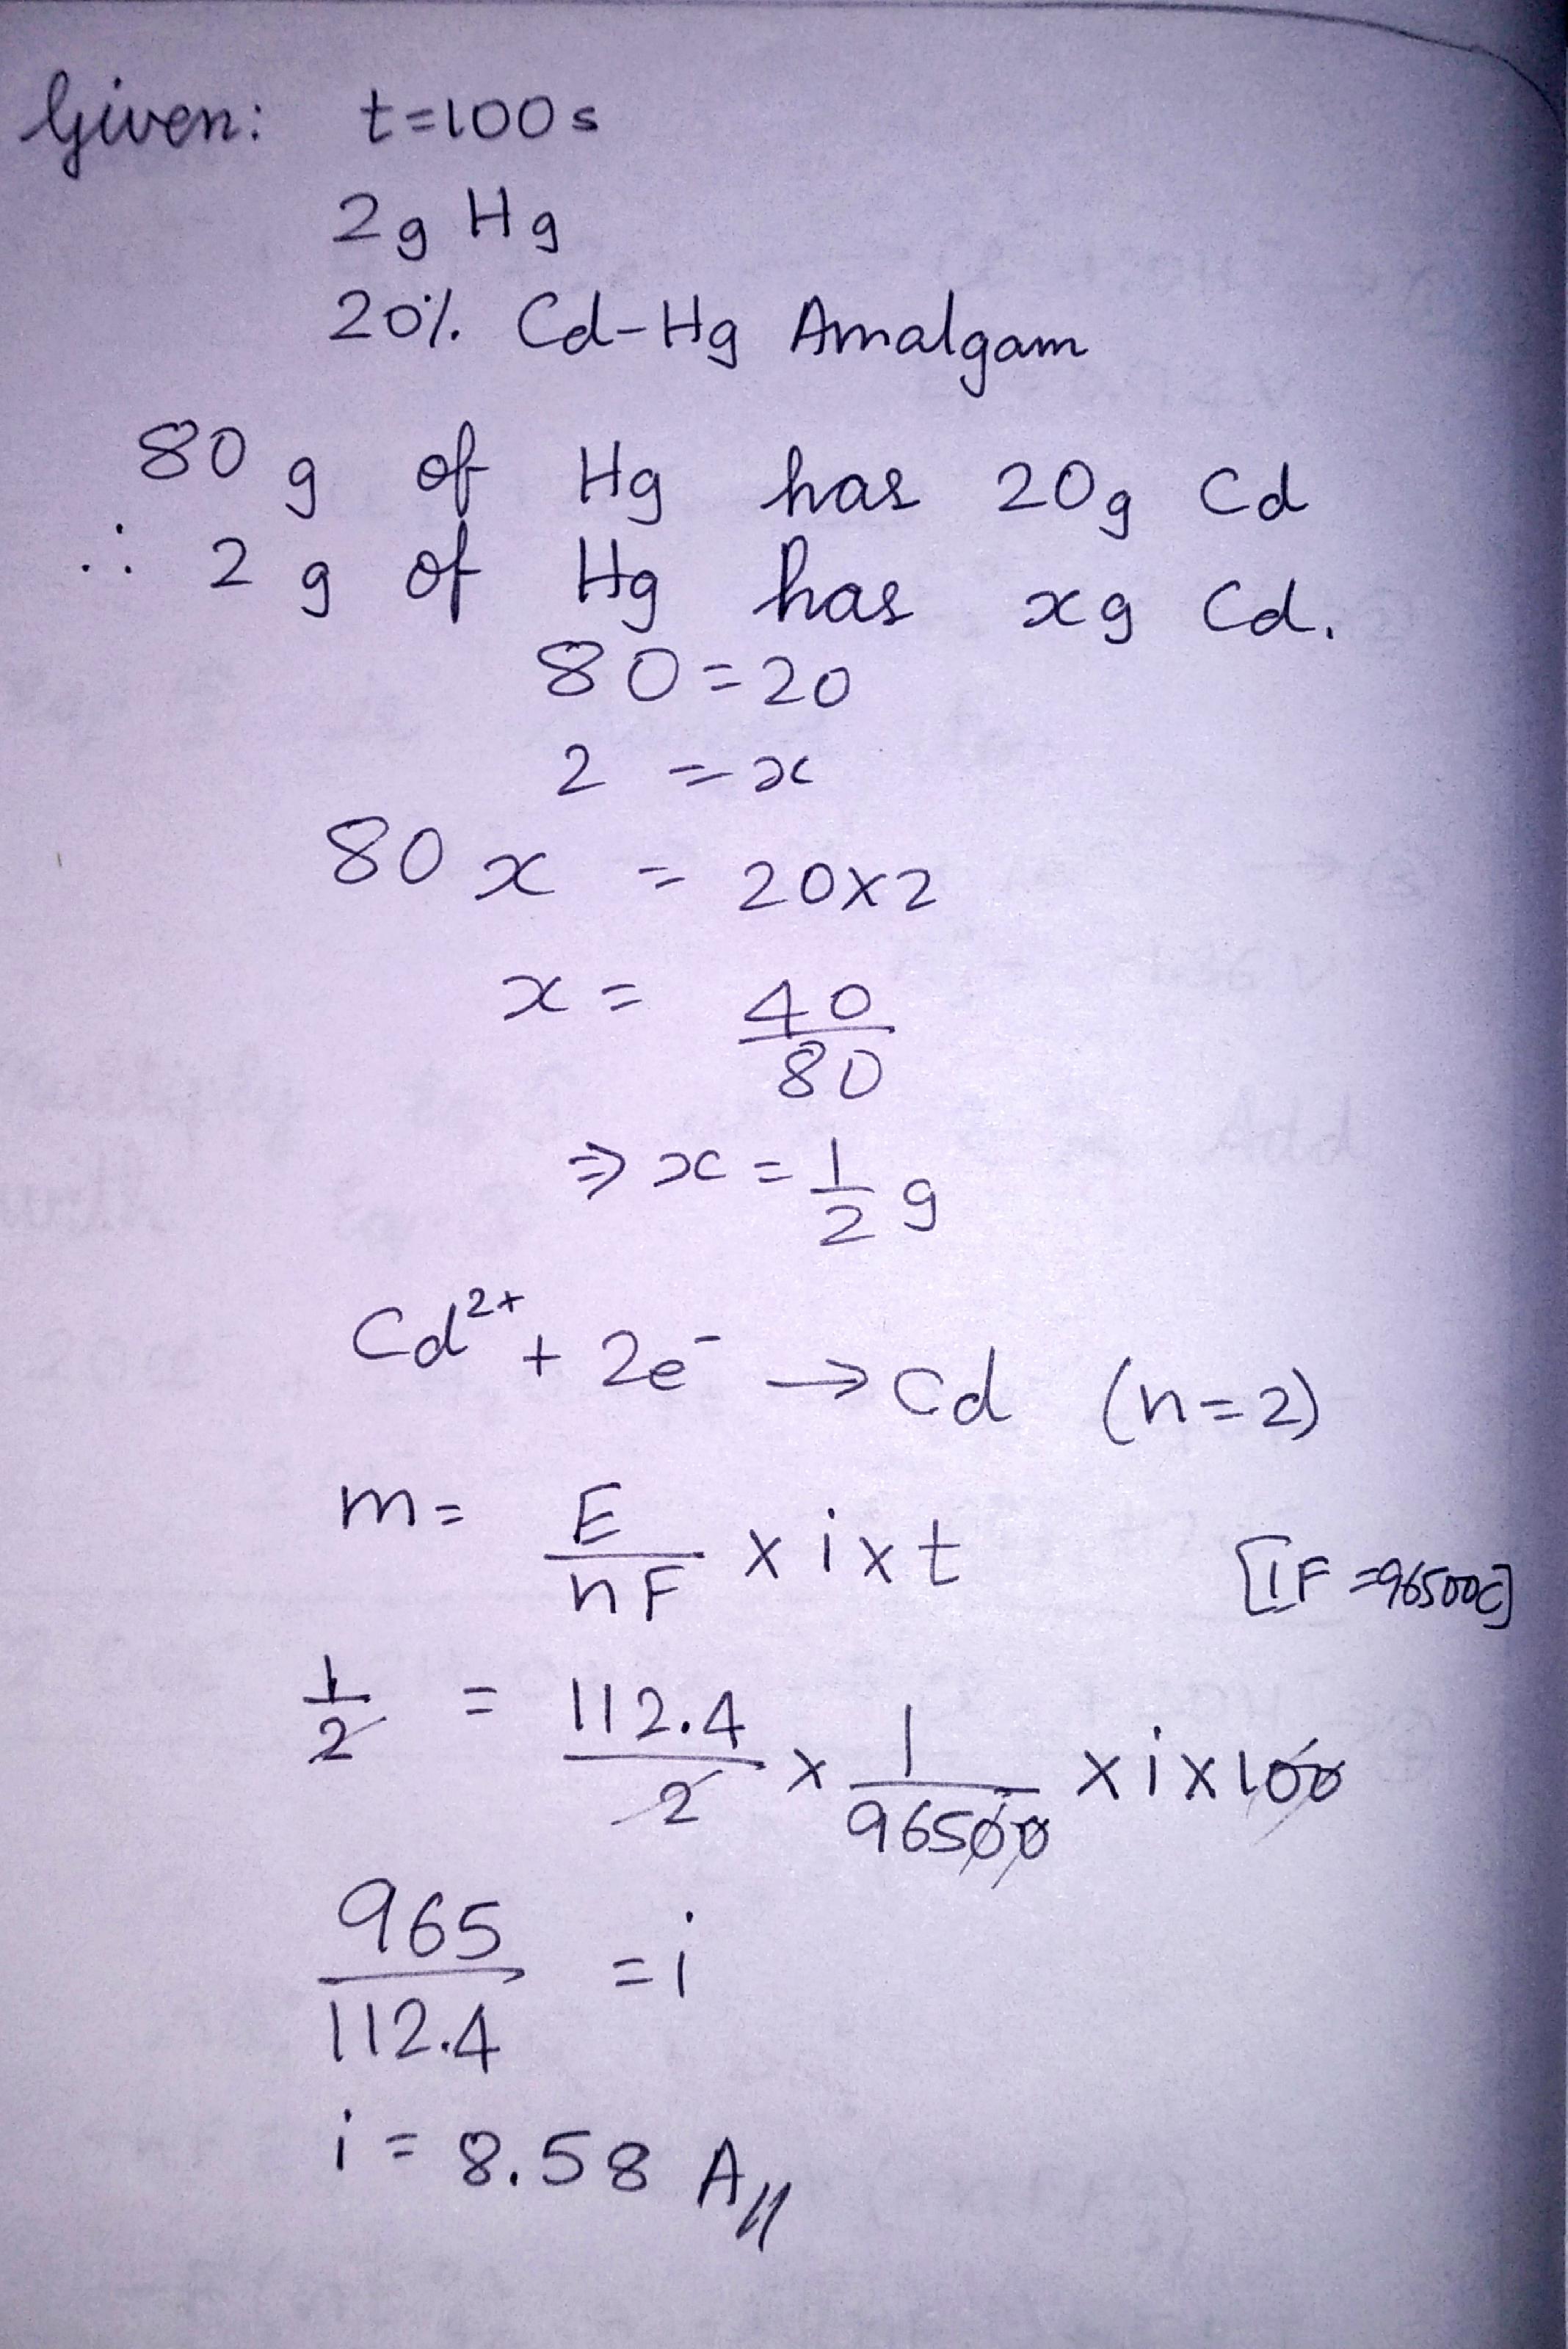 Given: t=100s
2g Hg
20% Cd-Hg Amalgam
80 g of Hg has 20g Cd
∴ 2 g of Hg has xg Cd.
80=20
2 =x
80 x = 20x2
x = 40/80
⇒ x = 1/2 g
Cd²⁺ + 2e⁻ → Cd (n=2)
m= E/nF x i x t [1F =96500C]
1/2 = 112.4/2 x 1/96500 x i x 100
965/112.4 = i
i = 8.58 A//